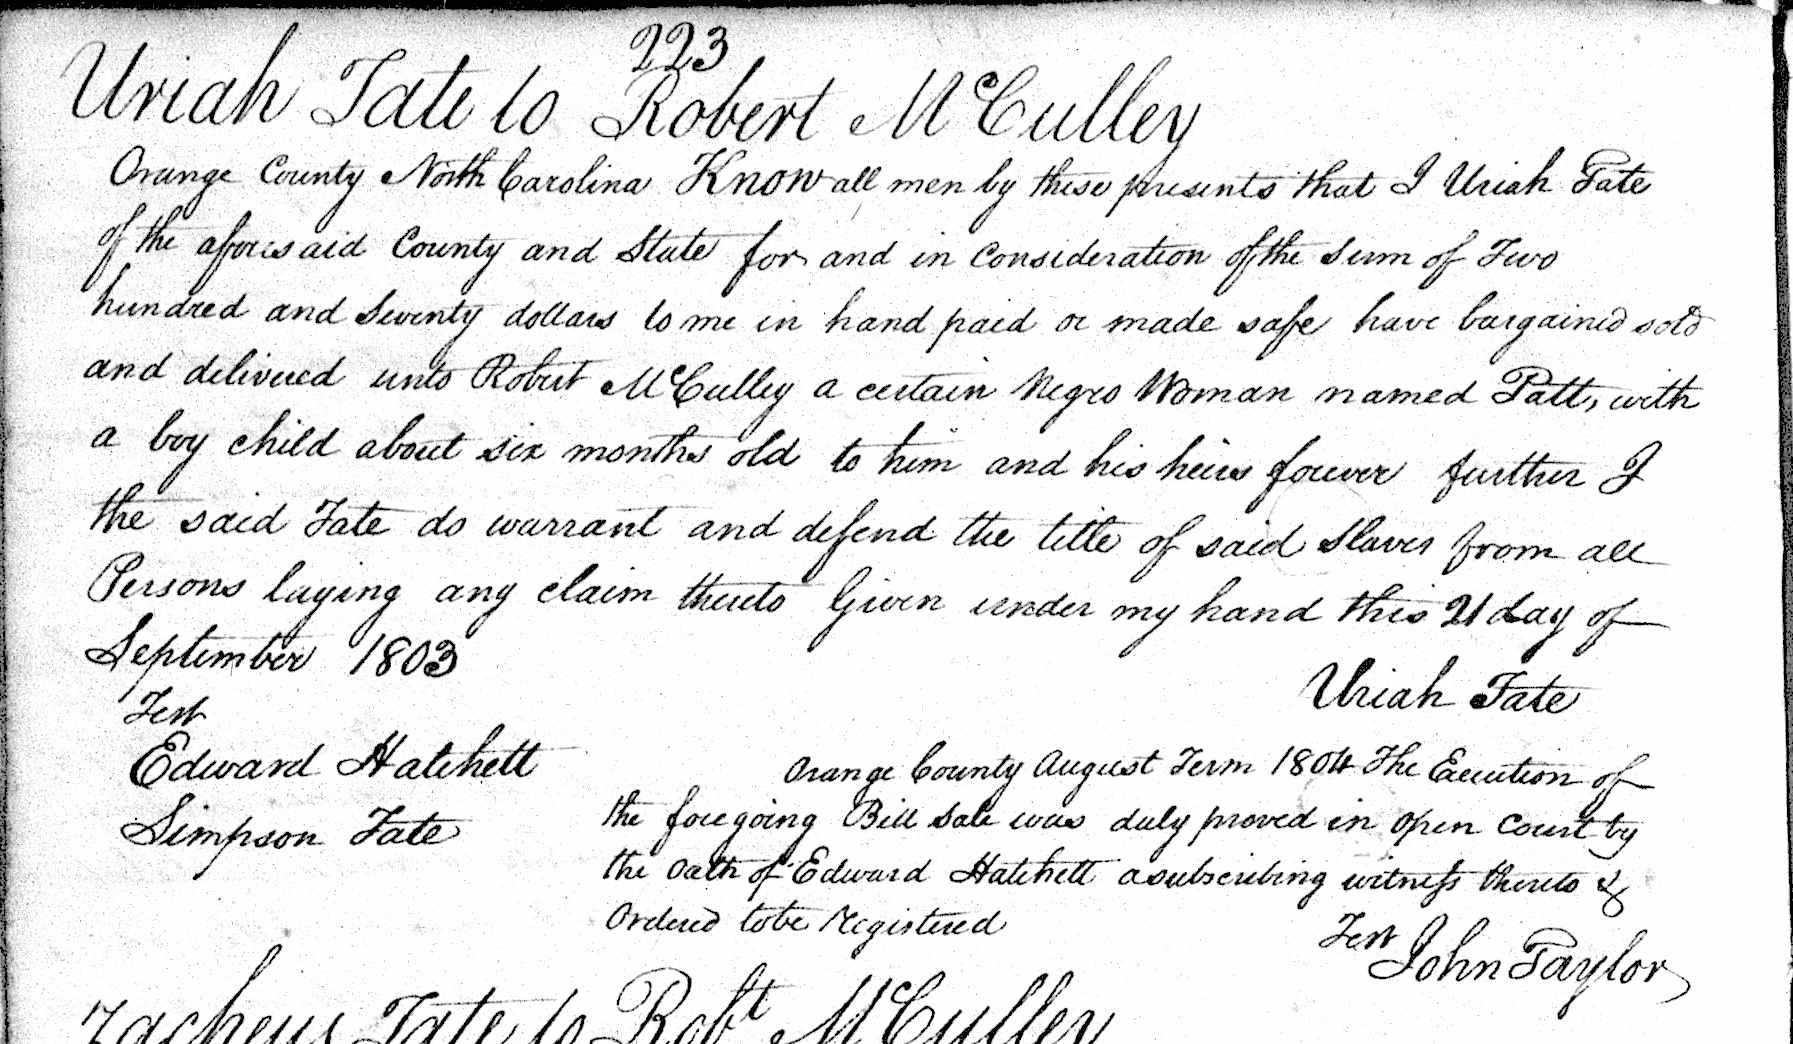 223
Uriah Tate to Robert McCulley
Orange County North Carolina Know all men by these presents that I Uriah Tate
of the aforesaid County and State for and in Consideration of the Sum of Two
hundred and Seventy dollars to me in hand paid or made safe have bargained sold
and delivered unto Robert McCulley a certain Negro Woman named Patt, with
a boy child about six months old to him and his heirs forever further I
the said Tate do warrant and defend the title of said Slaves from all
Persons laying any claim thereto Given under my hand this 21 day of
September 1803
Uriah Tate
Test
Edward Hatchett
Simpson Tate
Orange County August Term 1804 The Execution of
the foregoing Bill Sale was duly proved in open Court by
the Oath of Edward Hatchett a subscribing witness thereto &
Ordered to be Registered
Test John Taylor
Zacheus Tate to Robt McCulley